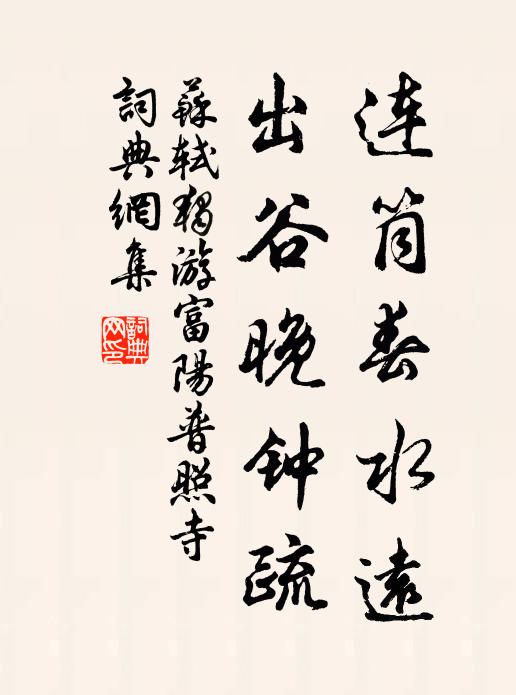 連筒春水遠
出谷晚钟疏
蘇軾獨游富陽普照寺
詞典網集
詞典网印